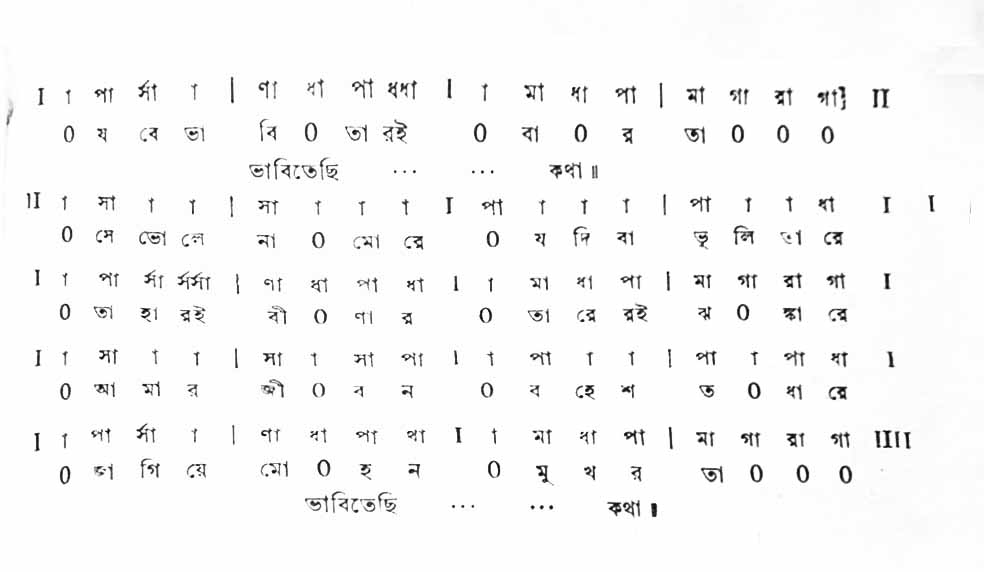 I । পা র্সা । | ণা ধা পা ধধা I । মা ধা পা | মা গা রা গা} II
0 য বে ভা বি 0 তা রই 0 বা 0 র তা 0 0 0
ভাবিতেছি ... ... কথা॥
II । সা । । | সা । । । I পা । । । | পা । । ধা I I
0 সে ভো লে না 0 মো রে 0 য দি বা ভু লি তা রে
I । পা র্সা র্সর্সা | ণা ধা পা ধা I । মা ধা পা | মা গা রা গা I
0 তা হা রই বী 0 ণা র 0 তা রে রই ঝ 0 ঙ্কা রে
I । সা । । | সা । সা পা I । পা । । | পা । পা ধা I
0 আ মা র জী 0 ব ন 0 ব হে শ ত 0 ধা রে
I । পা র্সা । | ণা ধা পা থা I । মা ধা পা | মা গা রা গা IIII
0 জা গি য়ে মো 0 হ ন 0 মু খ র তা 0 0 0
ভাবিতেছি ... ... কথা॥